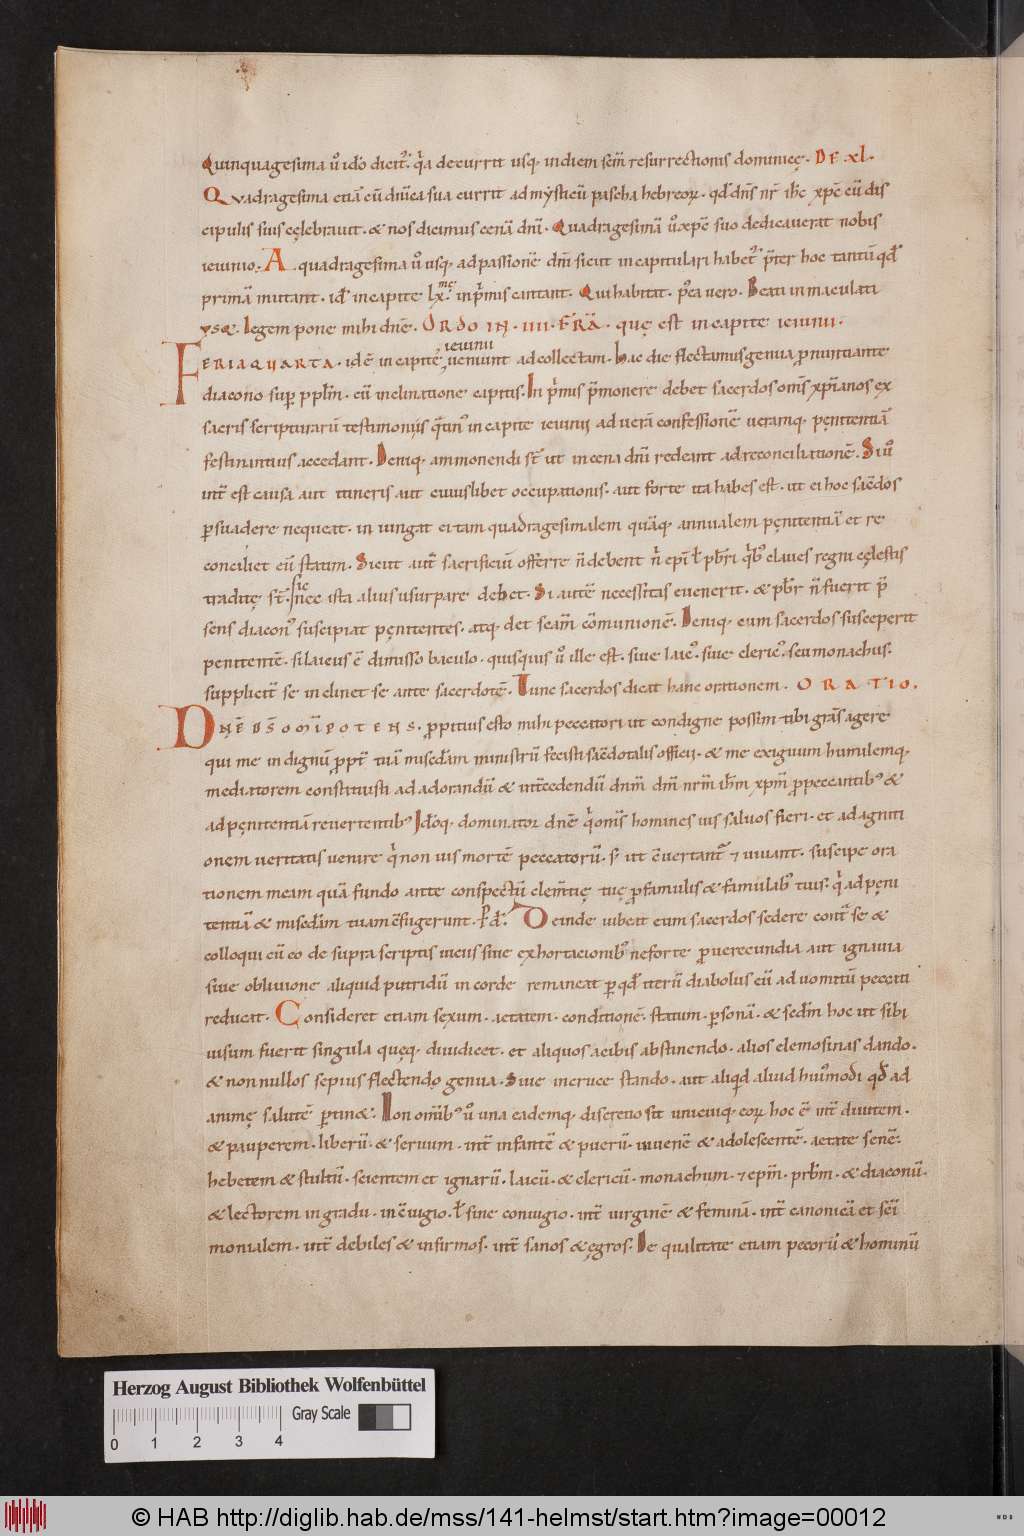 Quinquagesima ů idõ dicit᷑. q̊a decurrit usq; indiem sc̃m resurrectionis dominicę. DE .xl.
Quadragesima etiã cũ dñica sua currit ad mysticũ pascha hebreoꝝ. qđ dñs nr̃ ih̃c xp̃c cũ dis
cipulis suis cęlebrauit. & nos dicimus cenã dñi. Quadragesimã ů xp̃c suo dedicauerat nobis
ieiunio. A quadragesima ů usq; adpassionẽ dñi sicut incapitulari habet᷑. p̃ter hoc tantũ qđ
primã mutant. id̃ incapite lx̃me. inp̃mis cantant. Qui habitat. p̃ea uero. Beati inmaculati
usq;. legem pone mihi dñe. ORDO IN. IIII. FR̃A. quę est incapite ieiunii.
FERIA QUARTA. idẽ in capitẽ ieiunii ueniunt adcollectam. hac die flectamus genua pronuntiante
diacono sup ppl̃m. cũ inclinatione capitis. In p̃mis p̃monere debet sacerdos om̃s xp̃ianos ex
sacris scripturarũ testimoniis q̃tin᷒ in capite ieiunii ad uerã confessionẽ ueramq; pęnitentiã
festinantius accedant. Deniq; ammonendi st̃ ut incena dñi redeant adreconciliationẽ. Si ů
int̃ est causa aut itineris aut cuiuslibet occupationis. aut forte ita habes est. ut ei hoc saẽdos
ꝑsuadere nequeat. in iungat ei tam quadragesimalem quãq; annualem pęnitentiã et re
conciliet eũ statim. Sicut aut̃ sacrificiũ offerre ñ debent ñ ep̃i ł pb̃ri q̃b᷒ claues regni cęlestis
traditę st̃. sic nec ista alius usurpare debet. Si autẽ necessitas euenerit. & pb̃r ñ fuerit p̃
sens diacon᷒ suscipiat pęnitentes. atq; det scam̃ cõmunionẽ. Deniq; cum sacerdos susceperit
penitentẽ. si laicus ẽ dimisso baculo. quisquis ů ille est. siue laic᷒. siue cleric᷒. seu monachus.
supplicit̃ se in clinet se ante sacerdotẽ. Tunc sacerdos dicat hanc orationem. ORATIO.
DNẼ D̃S OM̃IPOTENS. propitius esto mihi peccatori ut condigne possim tibi grãs agere
qui me in dignũ ꝓpt̃ tuã misedãm ministrũ fecisti saẽdotalis officii. & me exiguum humilemq;
mediatorem constituisti ad adorandũ & int̃cedendũ dnm̃ dm̃ nrm̃ ihm̃ xpm̃ ꝓ peccantib᷒ &
ad pęnitentiã reuertentib᷒ Idõq; dominator dnẽ q̃ om̃s homines uis saluos fieri. et ad agniti
onem ueritatis uenire q̃ non uis mortẽ peccatorũ. s; ut c̃uertant᷑ ⁊ uiuant. suscipe ora
tionem meam quã fundo ante conspectũ clem̃tię tuę ꝓ famulis & famulab᷒ tuis. q̃ ad pęni
tentiã & misedãm tuam c̃fugerunt. P d̃. Deinde iubeat eum sacerdos sedere cont̃ se &
colloqui cũ eo de supra scriptis uiciis siue exhortationib᷒ ne forte ꝓ uerecundia aut ignauia
siue obliuione aliquid putridũ in corde remaneat ꝑ qđ iterũ diabolus eũ ad uomitũ peccati
reducat. Consideret etiam sexum. aetatem. conditionẽ. statum. ꝑsonã. & sedm̃ hoc ut sibi
uisum fuerit singula quęq; diiudicet. et aliquos acibis abstinendo. alios elemosinas dando.
& non nullos sepius flectendo genua. Siue incruce stando. aut aliqid aliud huůmodi qđ ad
animę salutẽ ꝑtin&. Non om̃ib᷒ ů una eademq; discretio sit unicuiq; eoꝝ hoc ẽ int̃ diuitem.
& pauperem. liberũ. & seruum. int̃ infantẽ & puerũ. iuuenẽ & adolescentẽ. aetate senẽ.
hebetem & stultũ. scientem et ignarũ. laicũ. & clericũ. monachum. ⁊ epm̃. prb̃m. & diaconũ.
& lectorem in gradu. in c̃iugio. ł sine coniugio. int̃ uirginẽ & feminã. int̃ canonicã et scĩ
monialem. int̃ debiles & infirmos. int̃ sanos & ęgros. De qualitate etiam pecorũ & hominũ
Herzog August Bibliothek Wolfenbüttel
Gray Scale
0 1 2 3 4
© HAB http://diglib.hab.de/mss/141-helmst/start.htm?image=00012